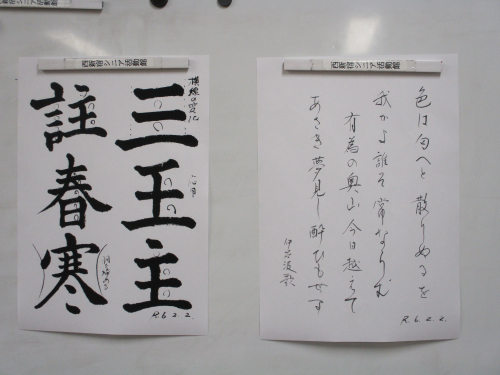 西新宿シニア活動館
横線の変化
三王主
註春寒
R.6.2.2.
西新宿シニア活動館
色は匂へと 散りぬるを
我かよ 誰そ 常ならむ
有為の奥山 今日越えて
あさき夢見し 酔ひもせす
伊呂波歌
R.6.2.2.